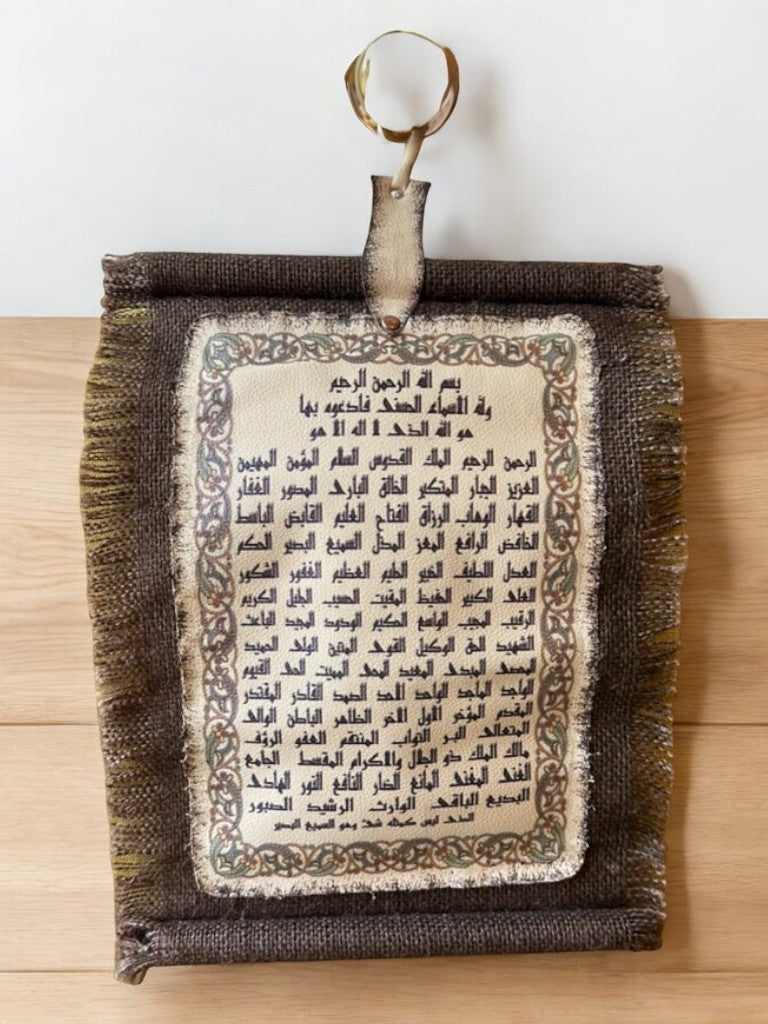 بسم الله الرحمن الرحيم
ولله الاسماء الحسنى فادعوه بها
هو الله الذى لا اله الا هو
الرحمن الرحيم الملك القدوس السلام المؤمن المهيمن
العزيز الجبار المتكبر الخالق البارى المصور الغفار
القهار الوهاب الرزاق الفتاح العليم القابض الباسط
الخافض الرافع المعز المذل السميع البصير الحكم
العدل اللطيف الخبير الحليم العظيم الغفور الشكور
العلى الكبير الحفيظ المقيت الحسيب الجليل الكريم
الرقيب المجيب الواسع الحكيم الودود المجيد الباعث
الشهيد الحق الوكيل القوى المتين الولى الحميد
المحصى المبدى المعيد المحى المميت الحى القيوم
الواجد الماجد الواحد الاحد الصمد القادر المقتدر
المقدم المؤخر الاول الاخر الظاهر الباطن الوالى
المتعالى البر التواب المنتقم العفو الرؤف
مالك الملك ذو الجلال والاكرام المقسط الجامع
الغنى المغنى المانع الضار النافع النور الهادى
البديع الباقى الوارث الرشيد الصبور
الذى ليس كمثله شئ وهو السميع البصير